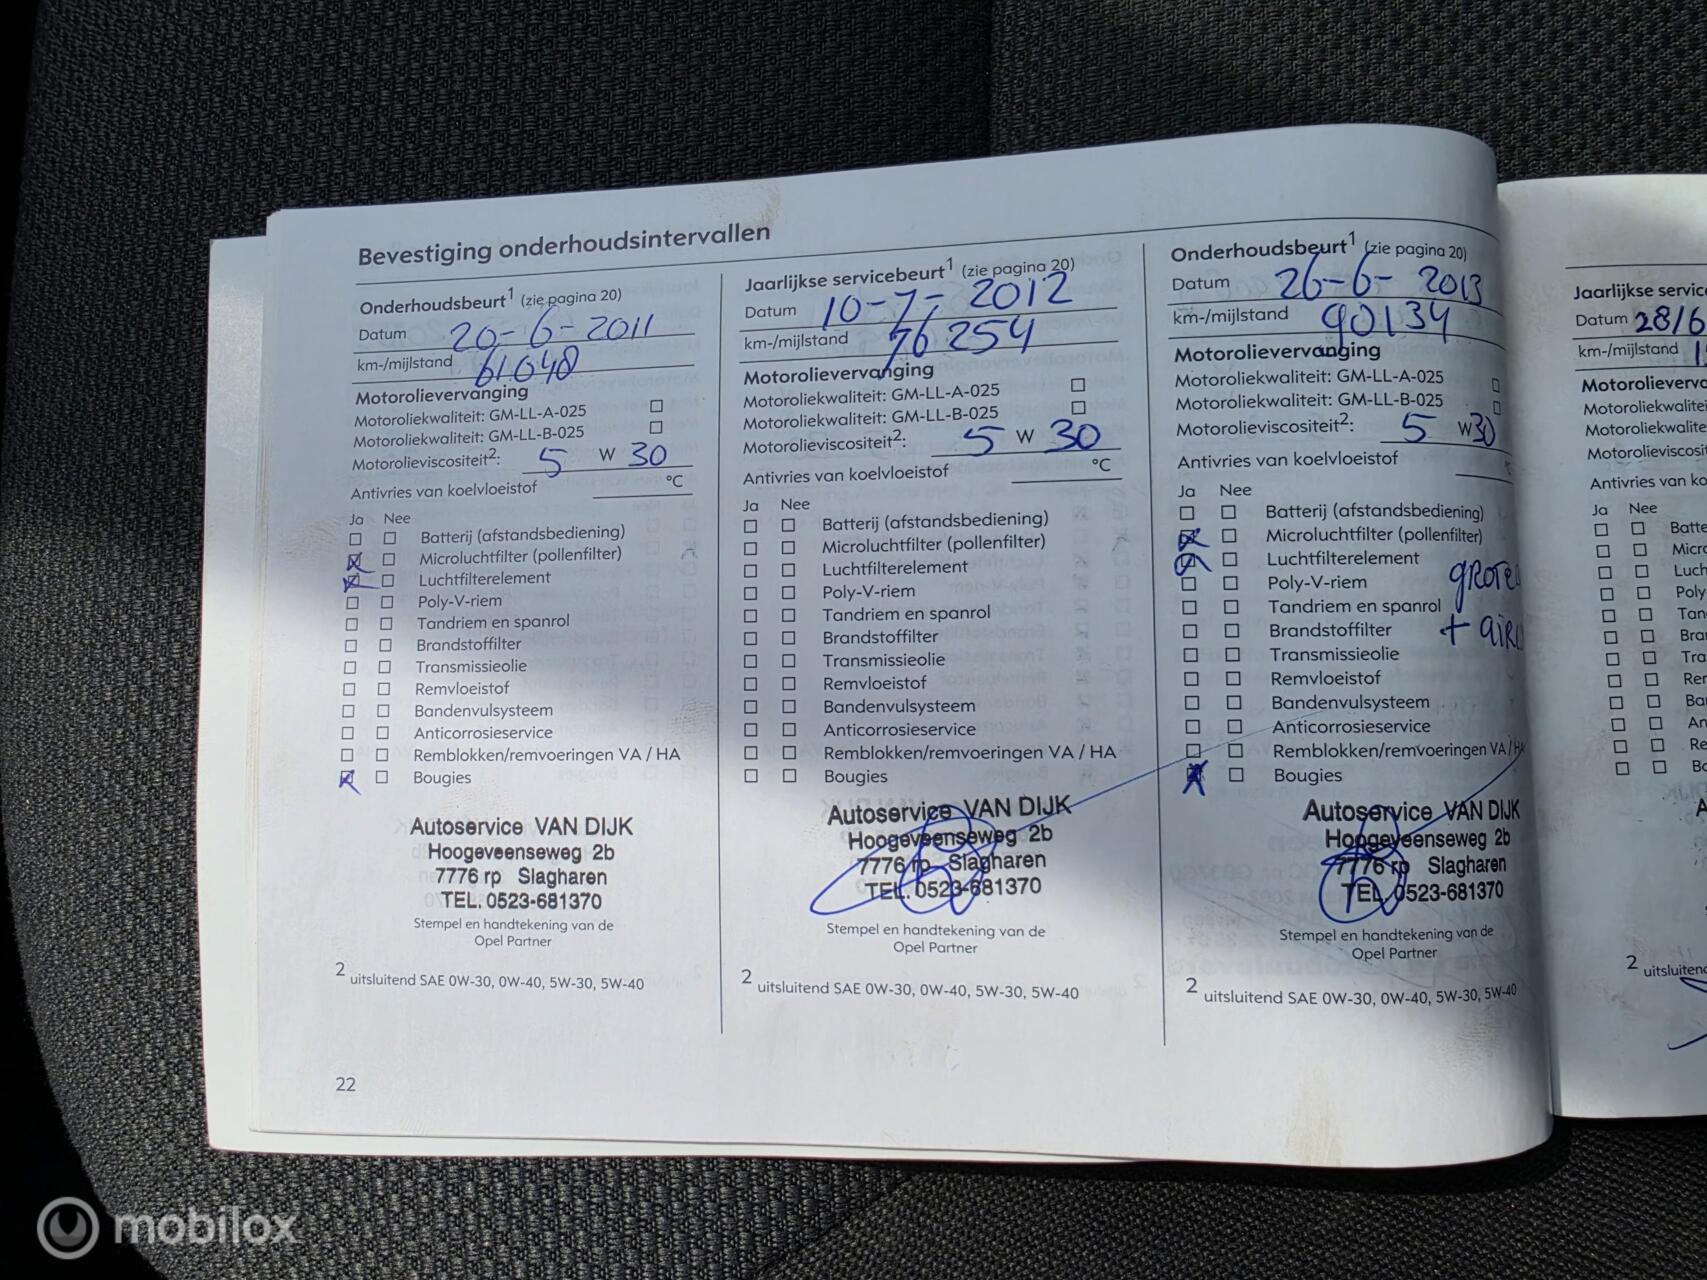 Bevestiging onderhoudsintervallen
Onderhoudsbeurt¹ (zie pagina 20)
Datum 20-6-2011
km-/mijlstand 61048
Motorolievervanging
Motoroliekwaliteit: GM-LL-A-025
Motoroliekwaliteit: GM-LL-B-025
Motorolieviscositeit²: 5 W 30
Antivries van koelvloeistof °C
Ja Nee
Batterij (afstandsbediening)
Microluchtfilter (pollenfilter)
Luchtfilterelement
Poly-V-riem
Tandriem en spanrol
Brandstoffilter
Transmissieolie
Remvloeistof
Bandenvulsysteem
Anticorrosieservice
Remblokken/remvoeringen VA / HA
Bougies
Autoservice VAN DIJK
Hoogeveenseweg 2b
7776 rp Slagharen
TEL. 0523-681370
Stempel en handtekening van de
Opel Partner
2 uitsluitend SAE 0W-30, 0W-40, 5W-30, 5W-40
22
Jaarlijkse servicebeurt¹ (zie pagina 20)
Datum 10-7-2012
km-/mijlstand 76254
Motorolievervanging
Motoroliekwaliteit: GM-LL-A-025
Motoroliekwaliteit: GM-LL-B-025
Motorolieviscositeit²: 5 W 30
Antivries van koelvloeistof °C
Ja Nee
Batterij (afstandsbediening)
Microluchtfilter (pollenfilter)
Luchtfilterelement
Poly-V-riem
Tandriem en spanrol
Brandstoffilter
Transmissieolie
Remvloeistof
Bandenvulsysteem
Anticorrosieservice
Remblokken/remvoeringen VA / HA
Bougies
Autoservice VAN DIJK
Hoogeveenseweg 2b
7776 rp Slagharen
TEL. 0523-681370
Stempel en handtekening van de
Opel Partner
2 uitsluitend SAE 0W-30, 0W-40, 5W-30, 5W-40
Onderhoudsbeurt¹ (zie pagina 20)
Datum 26-6-2013
km-/mijlstand 90134
Motorolievervanging
Motoroliekwaliteit: GM-LL-A-025
Motoroliekwaliteit: GM-LL-B-025
Motorolieviscositeit²: 5 W 30
Antivries van koelvloeistof
Ja Nee
Batterij (afstandsbediening)
Microluchtfilter (pollenfilter)
Luchtfilterelement
Poly-V-riem
Tandriem en spanrol
Brandstoffilter + 
Transmissieolie
Remvloeistof
Bandenvulsysteem
Anticorrosieservice
Remblokken/remvoeringen VA / HA
Bougies
Autoservice VAN DIJK
Hoogeveenseweg 2b
7776 rp Slagharen
TEL. 0523-681370
Stempel en handtekening van de
Opel Partner
2 uitsluitend SAE 0W-30, 0W-40, 5W-30, 5W-40
Jaarlijkse
Datum 28/6
km-/mijlstand
Ja Nee
2
mobilox